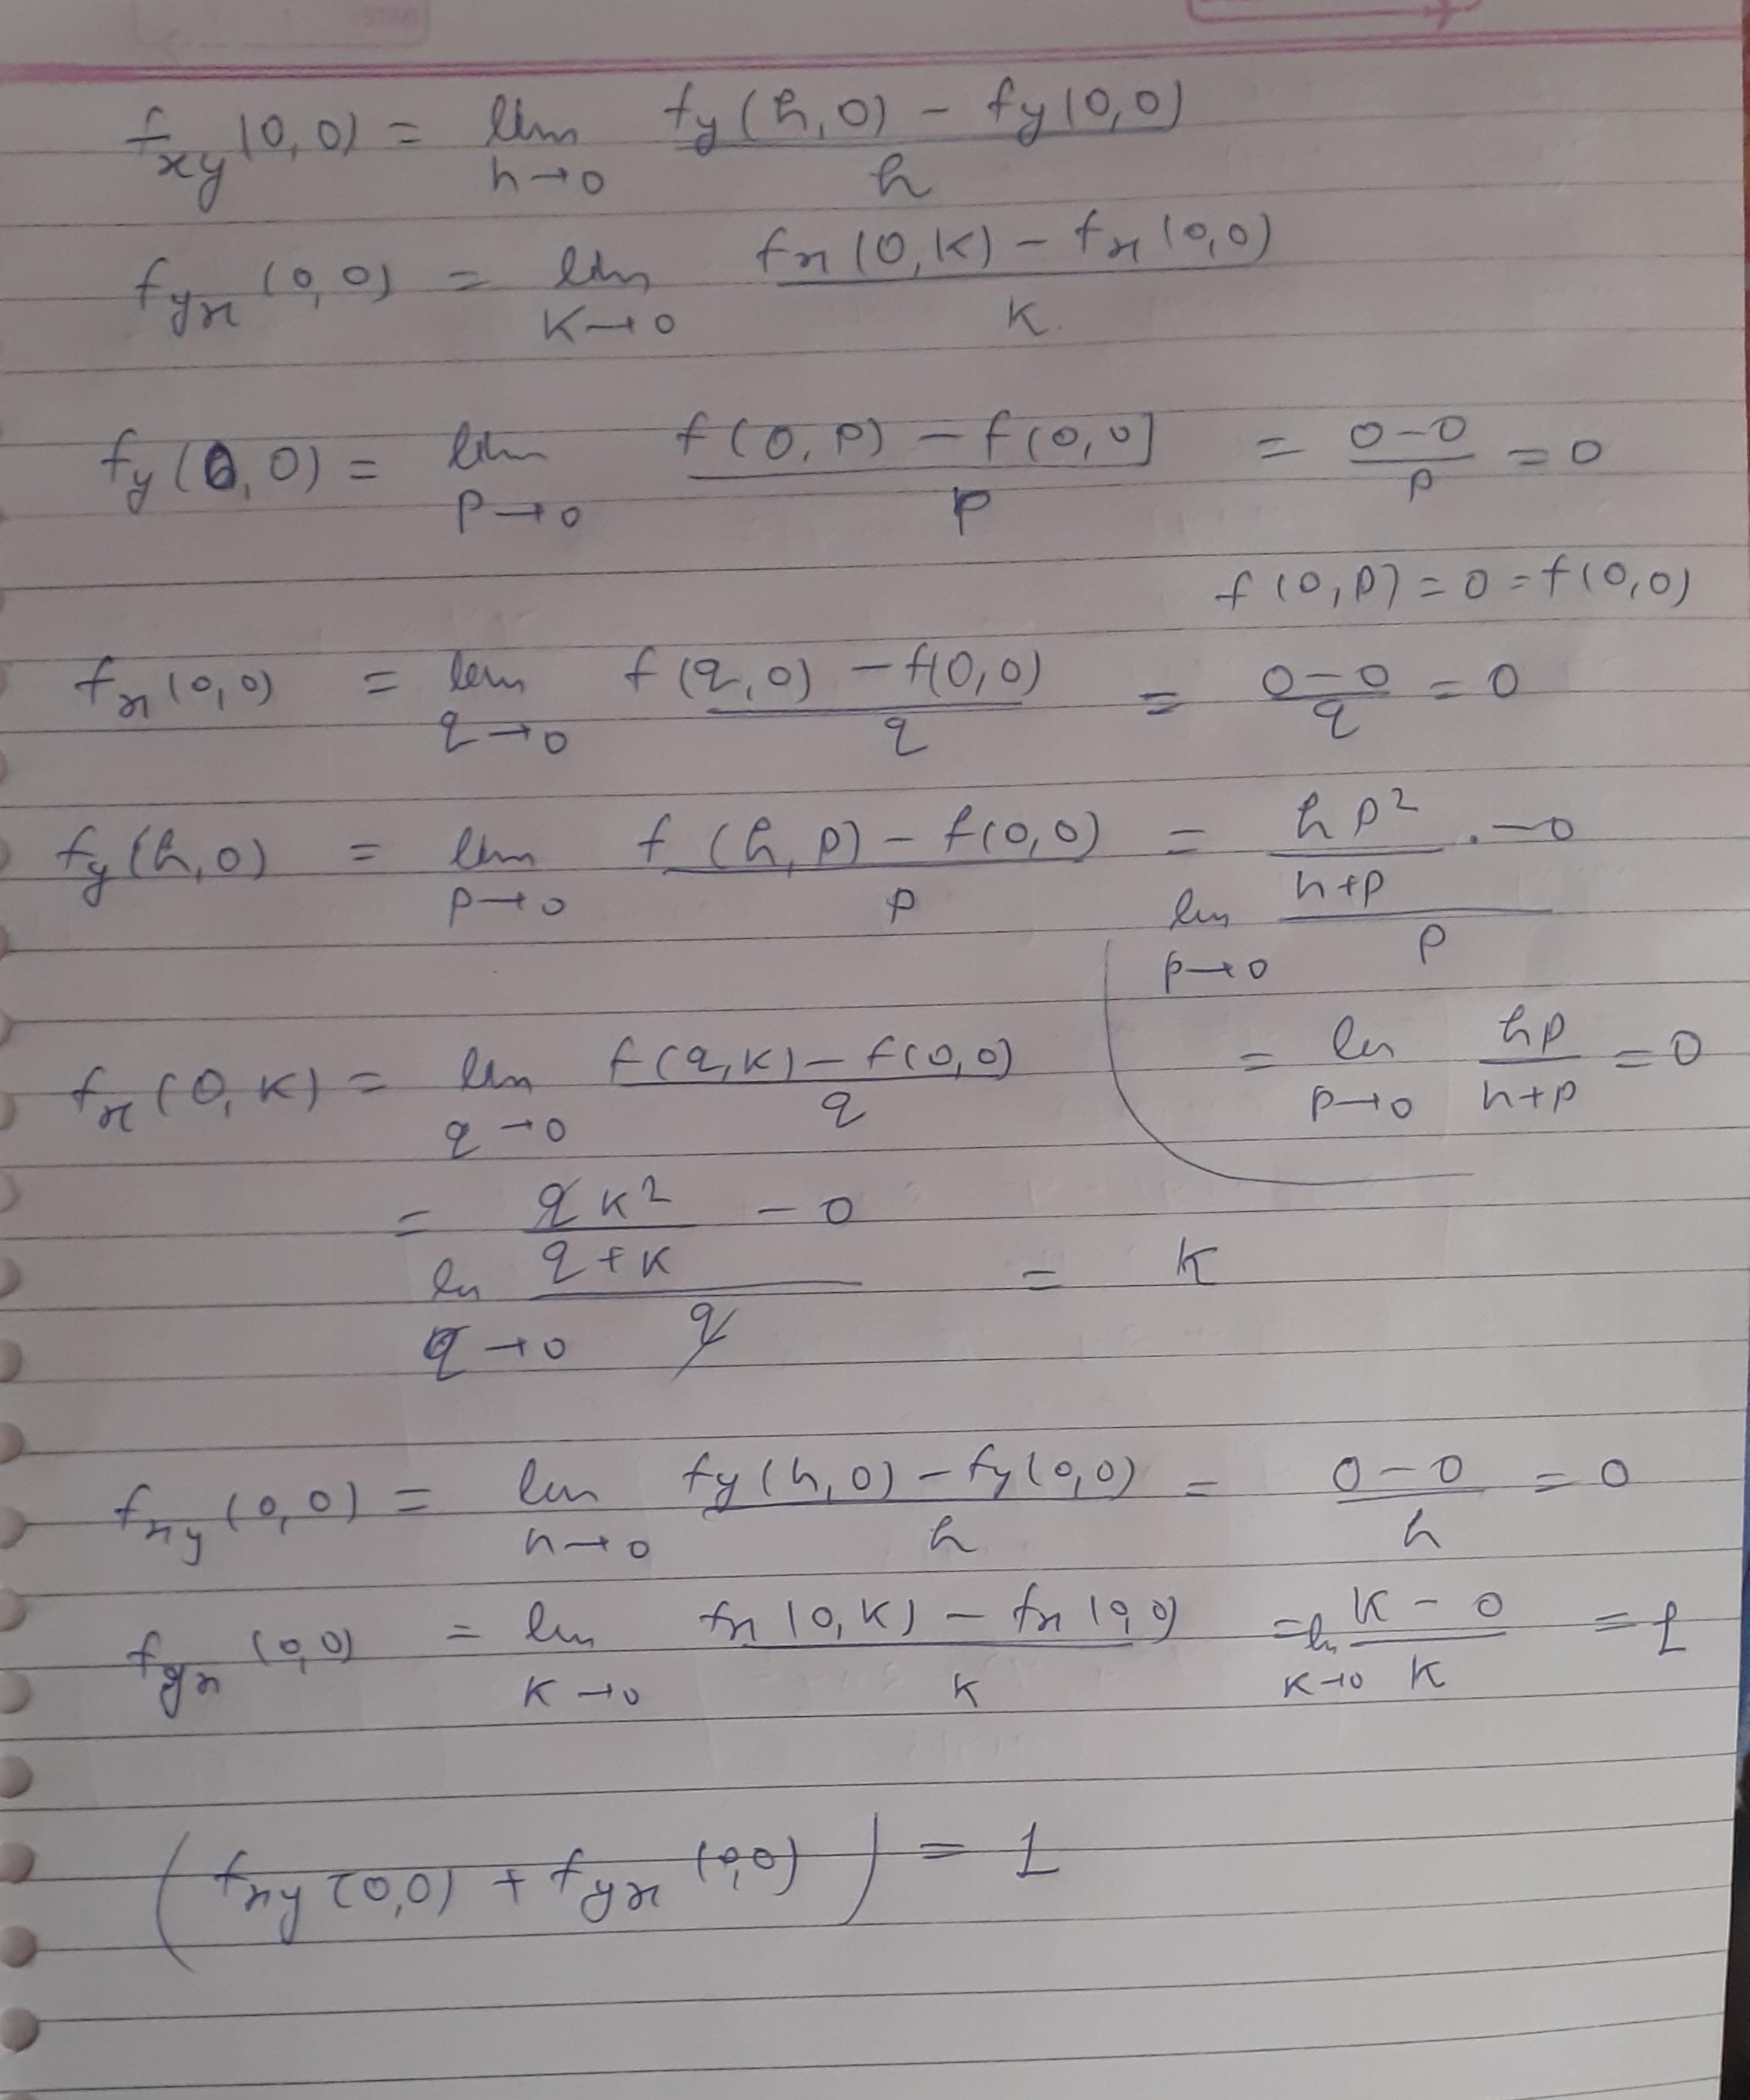 f_xy (0,0) = lim h→0 (f_y (h,0) - f_y (0,0)) / h
f_yx (0,0) = lim K→0 (f_x (0,K) - f_x (0,0)) / K.
f_y (0,0) = lim P→0 (f(0,P) - f(0,0]) / P = (0-0)/P = 0
f(0,P) = 0 = f(0,0)
f_x (0,0) = lim q→0 (f(q,0) - f(0,0)) / q = (0-0)/q = 0
f_y (h,0) = lim P→0 (f(h,P) - f(0,0)) / P = lim P→0 (hP²/(h+P) . - 0) / P
= lim P→0 hP/(h+P) = 0
f_x (0,K) = lim q→0 (f(q,K) - f(0,0)) / q
= lim q→0 (qK²/(q+K) - 0) / q = K
f_xy (0,0) = lim h→0 (f_y (h,0) - f_y (0,0)) / h = (0-0)/h = 0
f_yx (0,0) = lim K→0 (f_x (0,K) - f_x (0,0)) / K = lim K→0 (K-0)/K = 1
(f_xy (0,0) + f_yx (0,0)) = 1